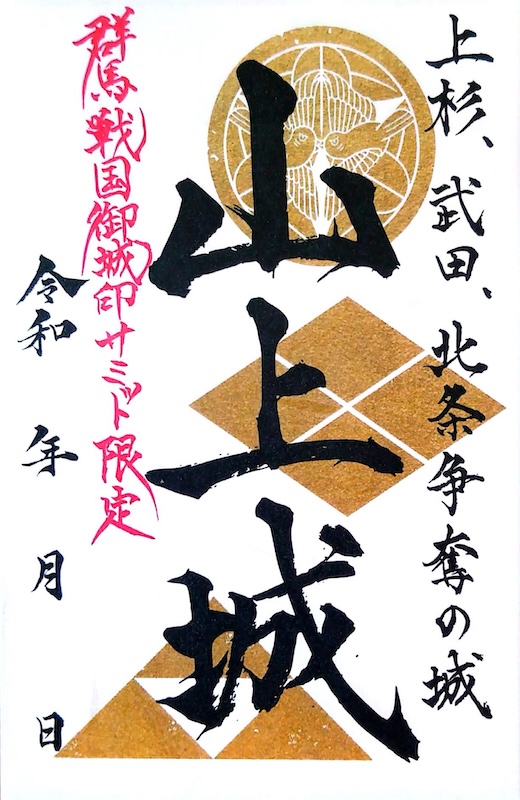 上杉、武田、北条争奪の城
山上城
群馬戦国御城印サミット限定
令和 年 月 日